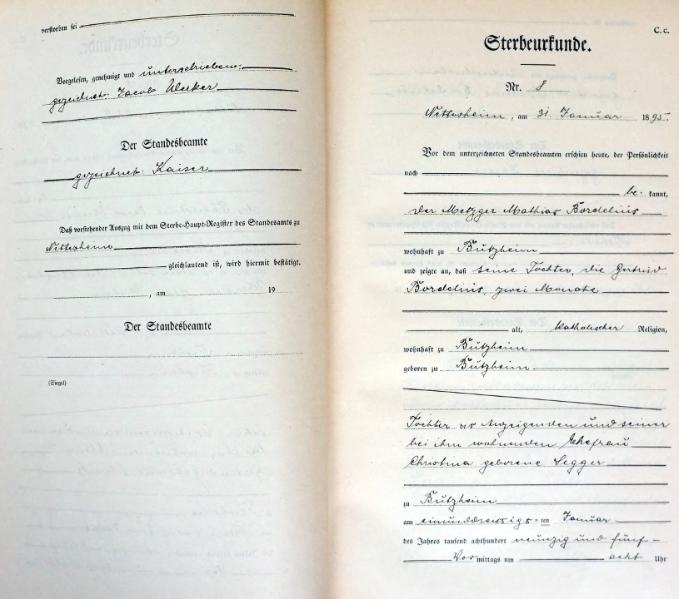 verstorben sei
Vorgelesen, genehmigt und unterschrieben:
gezeichnet: Jacob
Der Standesbeamte
gezeichnet: Kaiser
Daß vorstehender Auszug mit dem Sterbe-Haupt-Register des Standesamts zu
Nettesheim
gleichlautend ist, wird hiermit bestätigt.
, am 19
Der Standesbeamte
(Siegel)
C. c.
Sterbeurkunde.
Nr. 8
Nettesheim, am 31. Januar 1895
Vor dem unterzeichneten Standesbeamten erschien heute, der Persönlichkeit
nach
be- kannt,
der Metzger Mathias Bordelius
wohnhaft zu Butzheim
und zeigte an, daß seine Tochter, die Gertrud
Bordelius, zwei Monate
alt, katholischer Religion,
wohnhaft zu Butzheim
geboren zu Butzheim
Tochter des Anzeigenden und seiner
bei ihm wohnenden Ehefrau
Christina geborene Segger
zu Butzheim
am einunddreissigs-ten Januar
des Jahres tausend achthundert neunzig und fünf-
Vor mittags um acht Uhr